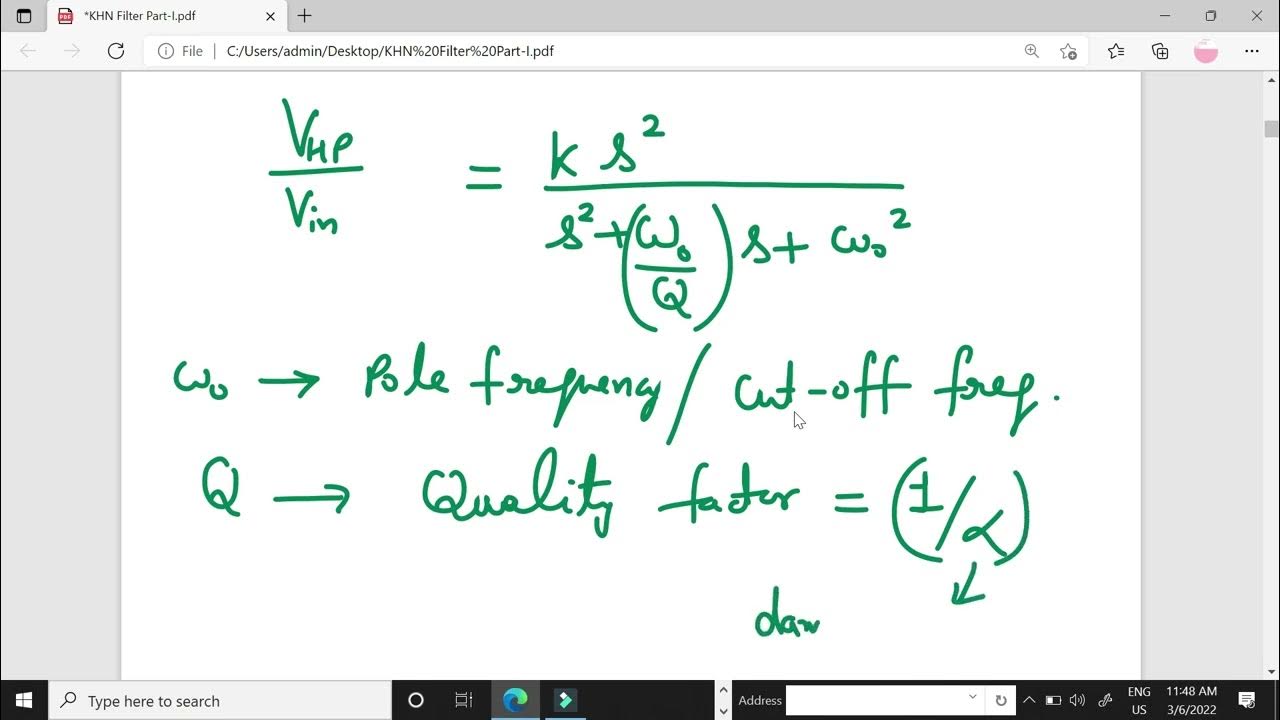 *KHN Filter Part-I.pdf
File | C:/Users/admin/Desktop/KHN%20Filter%20Part-I.pdf
V_HP / V_in = K s² / (s² + (ω₀/Q) s + ω₀²)
ω₀ → Pole frequency / Cut-off freq.
Q → Quality factor = (1/α)
↙
dam
Type here to search
Address
ENG
US
11:48 AM
3/6/2022